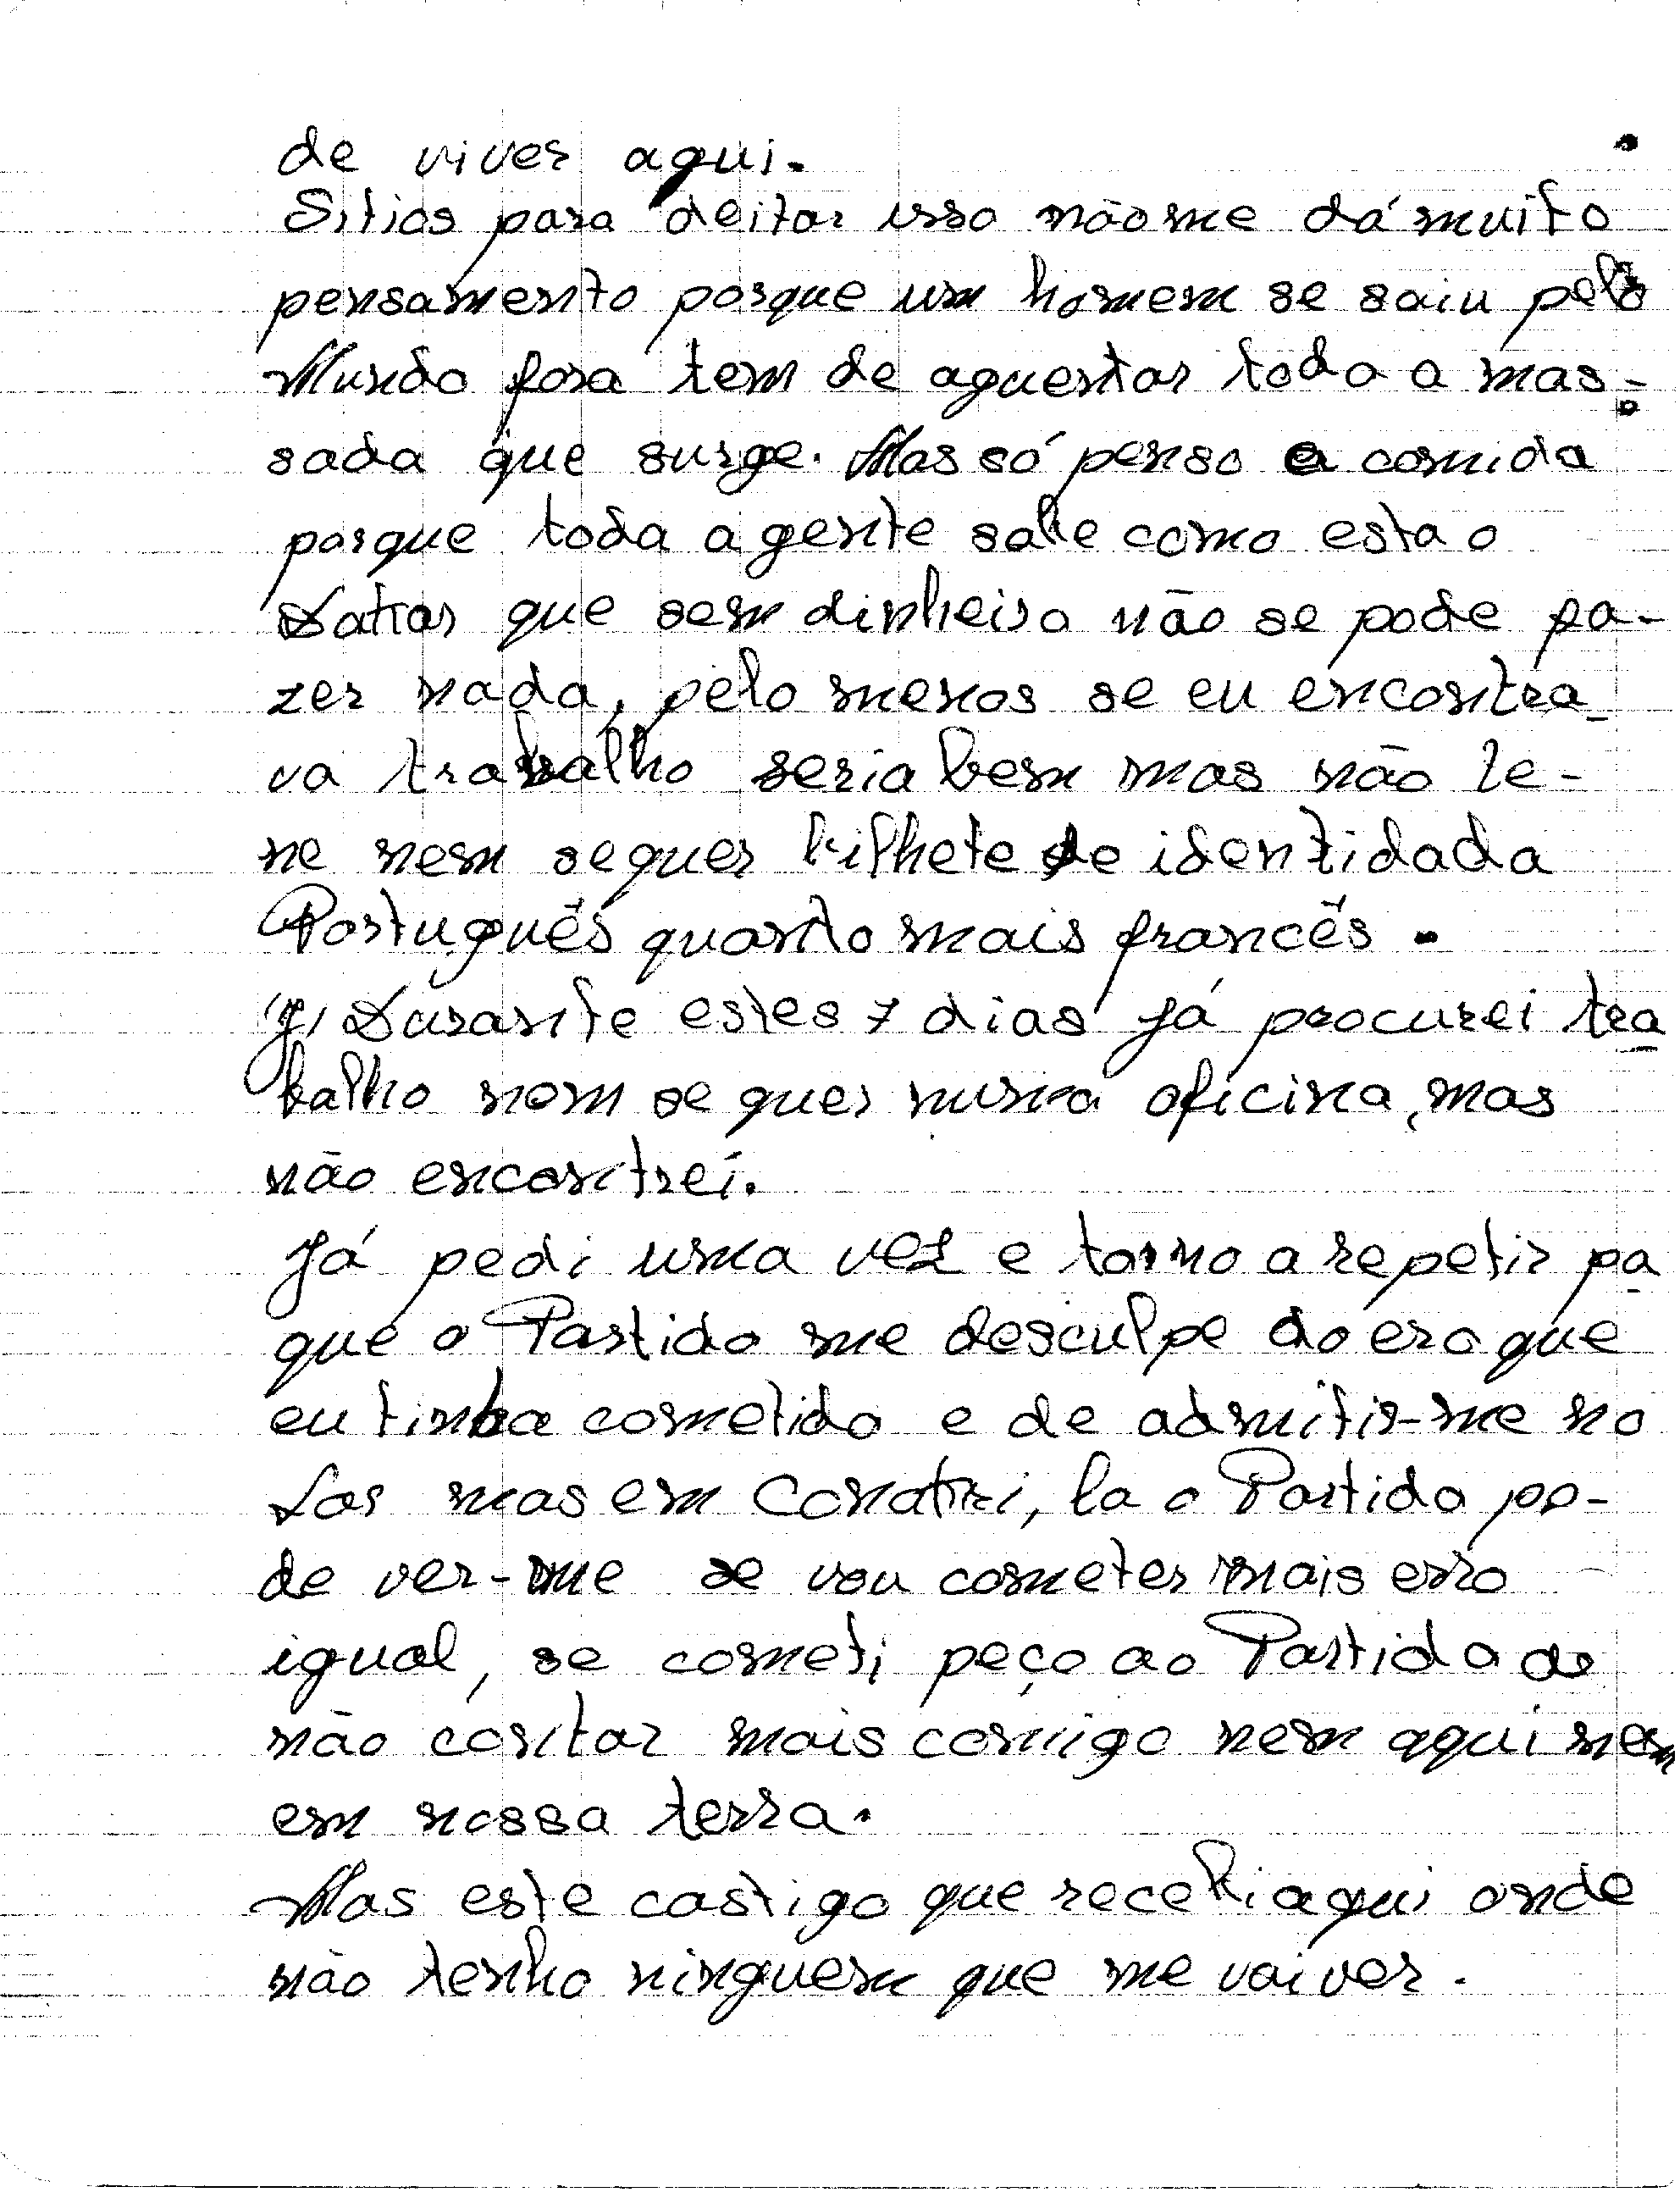 de viver aqui.
Sitios para deitar isso nãome dá muito
pensamento porque um homem se saiu pelo
Mundo fora tem de aguentar toda a mas-
sada que surge. Mas só penso a comida
porque toda a gente sabe como esta o
Dakar que sem dinheiro não se pode fa-
zer nada, pelo menos se eu encontra-
va trabalho seria bem mas não te-
ne nem sequer bilhete de identidada
Português quanto mais francês.
Durante estes 7 dias já procurei tra
balho nem sequer numa oficina, mas
não encontrei.
Já pedi uma vez e torno a repetir pa
que o Partido me desculpe do ero que
eu tinha cometido e de admitir-me no
Lar mas em Conakri, la o Partido po-
de ver-me se vou cometer mais erro
igual, se cometi peço ao Partido de
não contar mais comigo nem aqui nem
em nossa terra.
Mas este castigo que recebi aqui onde
não tenho ninguem que me vai ver.